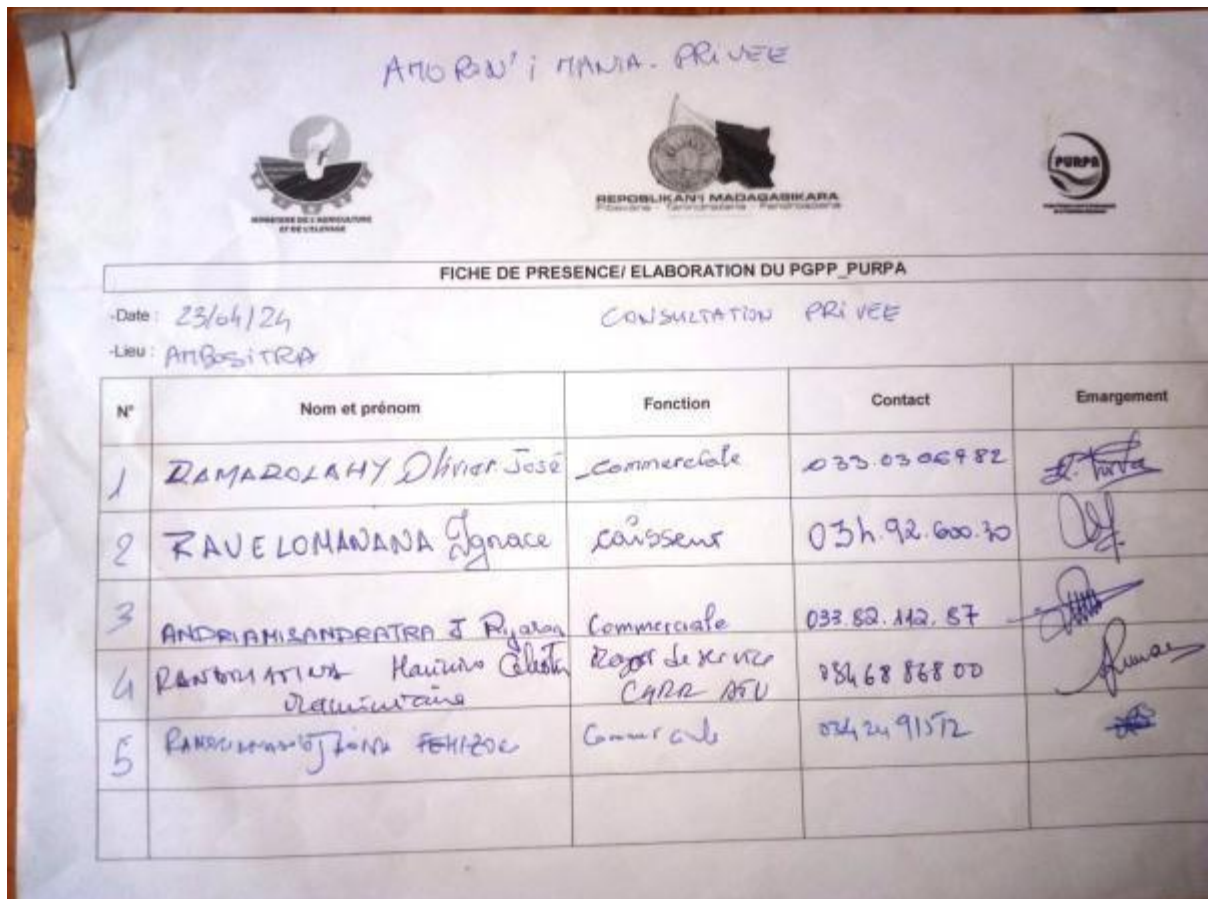 AMORON'i MANIA - PRIVEE
MINISTERE DE L'AGRICULTURE
ET DE L'ELEVAGE
REPOBLIKAN'I MADAGASIKARA
Fitiavana - Tanindrazana - Fandrosoana
PURPA
FICHE DE PRESENCE/ ELABORATION DU PGPP_PURPA
-Date : 23/04/24 CONSULTATION PRIVEE
-Lieu : AMBOSITRA
N° Nom et prénom Fonction Contact Emargement
1 RAMAROLAHY Olivier José commerciale 033.03 069 82
2 RAVELOMANANA Ignace caisseur 034.92.600.30
3 ANDRIAMISANDRATRA J Commerciale 033.82.112.57
4 de service 034 68 868 00
CARR
5 Commerciale 034 24 915 12